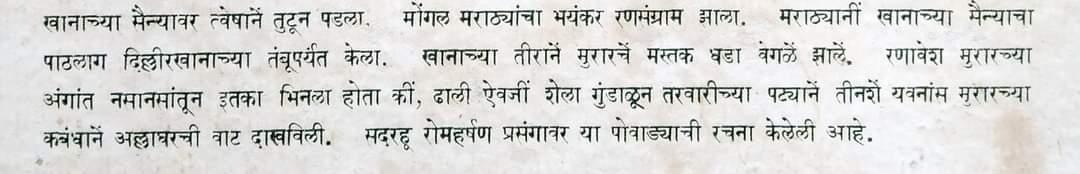 खानाच्या सैन्यावर त्वेषानें तुटून पडला. मोंगल मराठ्यांचा भयंकर रणसंग्राम झाला. मराठ्यानीं खानाच्या सैन्याचा
पाठलाग दिल्लीरखानाच्या तंबूपर्यंत केला. खानाच्या तीरानें मुरारचें मस्तक धडा वेगळें झालें. रणावेश मुरारच्या
अंगांत नमानमांतून इतका भिनला होता कीं, ढाली ऐवजीं शेला गुंडाळून तरवारीच्या पट्यानें तीनशें यवनांस मुरारच्या
कबंधानें अल्लाघरची वाट दाखविली. सदरहू रोमहर्षण प्रसंगावर या पोवाड्याची रचना केलेली आहे.